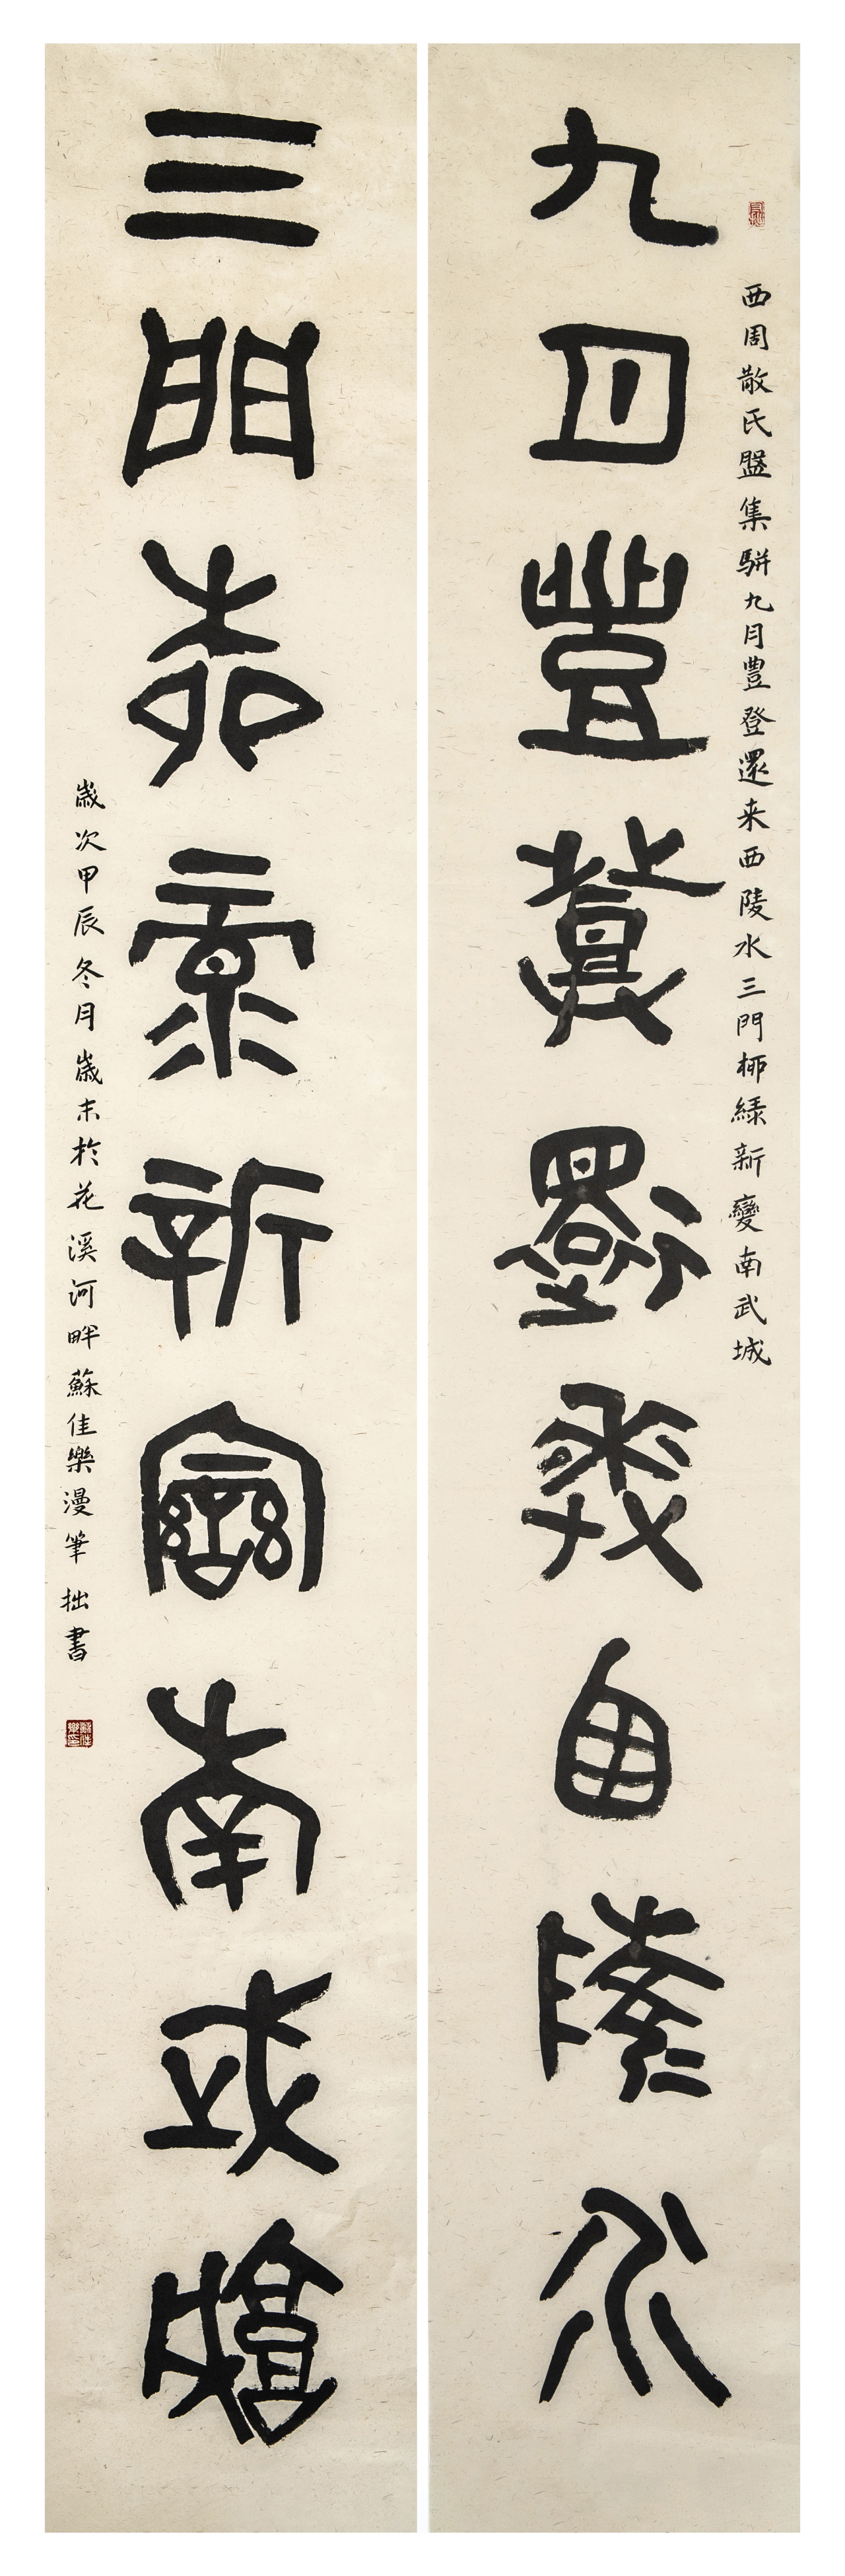 九月豐登還来西陵水
三門桺綠新變南武城
西周散氏盤集駢九月豐登還来西陵水三門桺綠新變南武城
歲次甲辰冬月歲末於花溪河畔蘇佳樂漫筆拙書